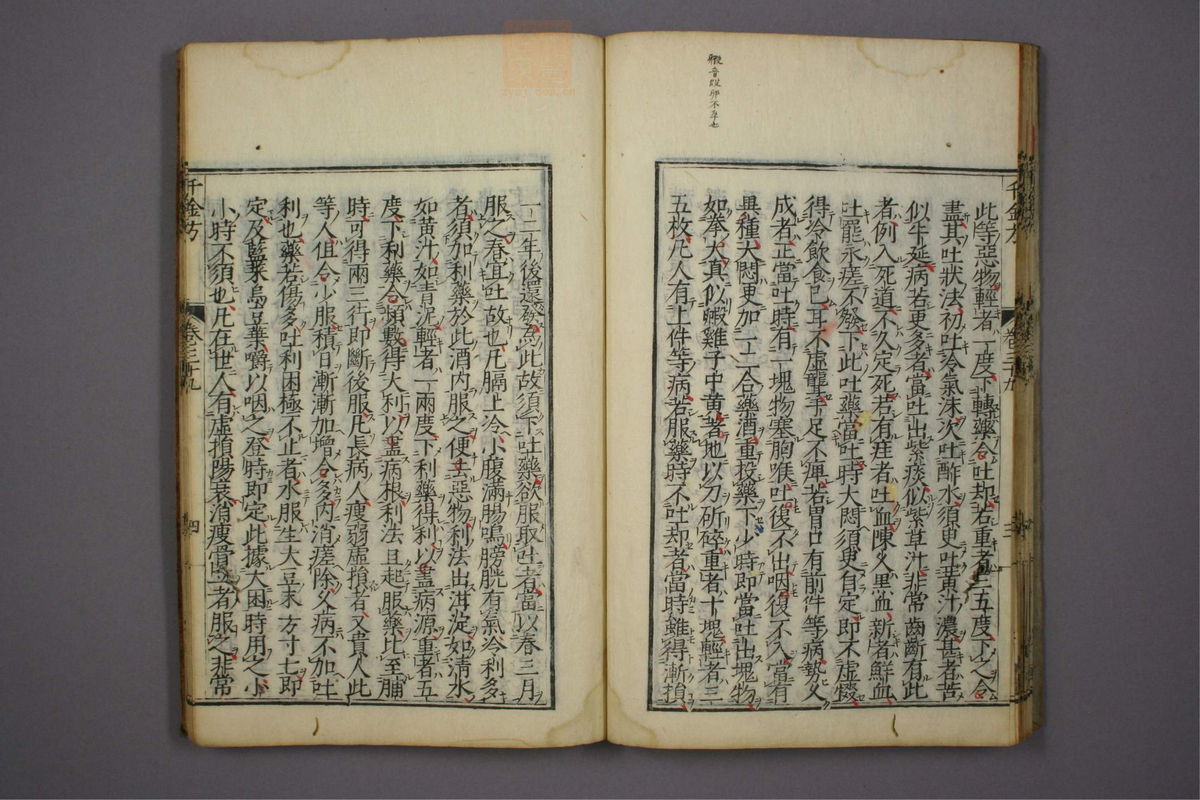 此等惡物輕者一度下轉藥令吐却若重者三五度下之令
盡其吐狀法初吐冷氣沫次吐酢水須臾吐黃汁濃甚者苦
似牛涎病若更多者當吐出紫痰似紫草汁非常齒齗有此
者例入死道不久定死若有疰者吐血陳久黑血新者鮮血
吐罷永瘥不發下此吐藥當吐時大悶須臾有定即不虛惙
得冷飲食已耳不虛聾手足不痺若胃口有前件等病勢久
成者正當吐時有一塊物塞胸喉吐復不出咽復不入當有
異種大悶更加一二合藥酒重投藥下少時即當吐出塊物
如拳大真似蝦雞子中黃著地以刀斫碎重者十塊輕者三
五枚凡人有上件等病若服藥時不吐却者當時雖得漸損
一二年後還發為此故須下吐藥欲服取吐者當以春三月
服之春宜吐故也凡膈上冷小腹滿腸鳴膀胱有氣冷利多
者須加利藥於此酒內服之便去惡物利法出洱淀如清水
如黃汁如青泥輕者一兩度下利藥得利以盡病源重者五
度下利藥令頻數得大利以盡病根利法旦起服藥比至晡
時可得兩三行即斷後服凡長病人瘦弱虛損者又貴人此
等人但令少服積日漸漸加增令多內消瘥除久病不加吐
利也藥若傷多吐利困極不止者水服生大豆末方寸七即
定及藍葉烏豆葉嚼以咽之登時即定此據大困時用之小
小時不須也凡在世人有虛損陽衰消瘦骨立者服之非常
千金方
卷三十九
三
千金方
卷三十九
四